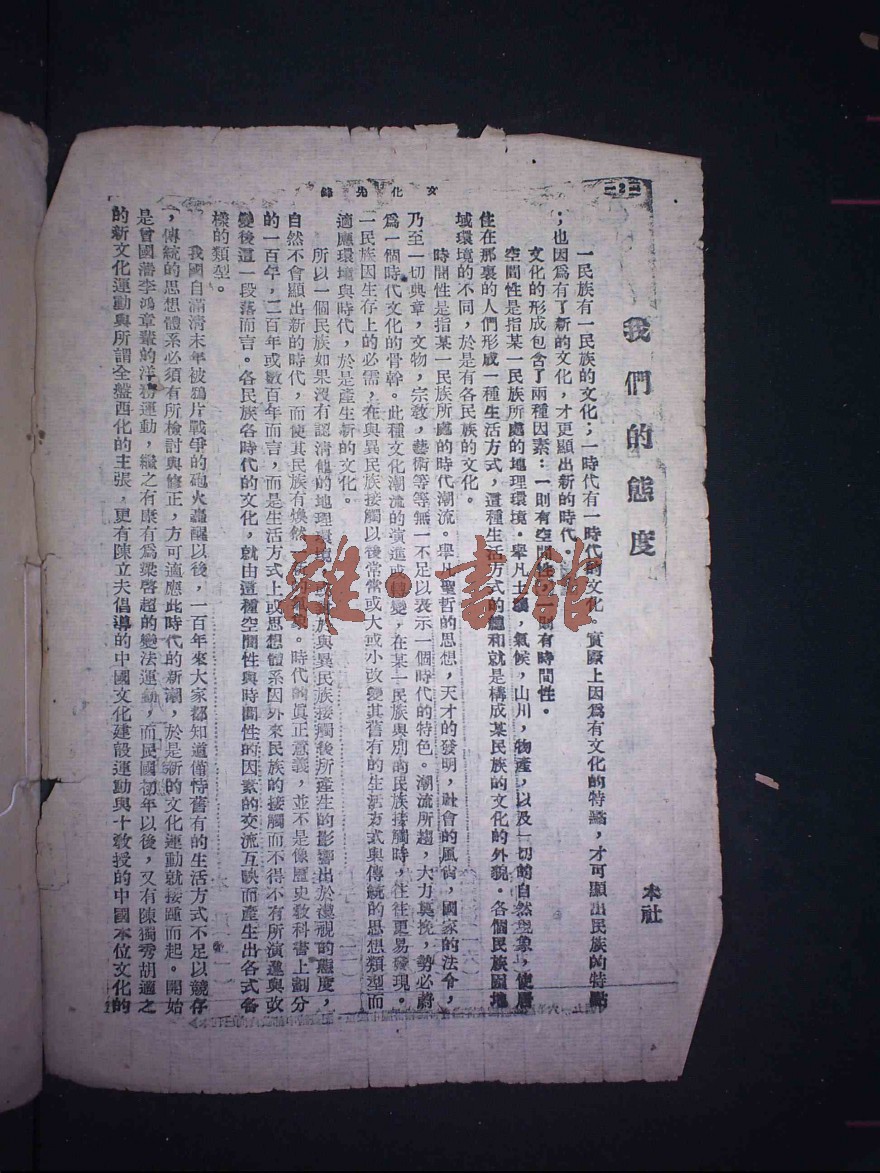 文化先鋒
2
我們的態度
本社
一民族有一民族的文化；一時代有一時代的文化。實際上因爲有文化的特質，才可顯出民族的特點
；也因爲有了新的文化，才更顯出新的時代。
文化的形成包含了兩種因素：一則有空間性，一則有時間性。
空間性是指某一民族所處的地理環境。舉凡土壤，氣候，山川，物產，以及一切的自然現象，使居
住在那裏的人們形成一種生活方式，這種生活方式的總和就是構成某民族的文化的外貌。各個民族因地
域環境的不同，於是有各民族的文化。
時間性是指某一民族所處的時代潮流。舉凡聖哲的思想，天才的發明，社會的風尚，國家的法令，
乃至一切典章，文物，宗教，藝術等等無一不足以表示一個時代的特色。潮流所趨，大力莫挽，勢必蔚
爲一個時代文化的骨幹。此種文化潮流的演進或轉變，在某一民族與別的民族接觸時，往往更易發現。
一民族因生存上的必需，在與異民族接觸以後常常或大或小改變其舊有的生活方式與傳統的思想類型而
適應環境與時代，於是產生新的文化。
所以一個民族如果沒有認清他的地理環境，對於與異民族接觸後所產生的影響出於漠視的態度，
自然不會顯出新的時代，而使其民族有煥然一新的現象。時代的眞正意義，並不是像歷史教科書上劃分
的一百年，二百年或數百年而言，而是生活方式上或思想體系因外來民族的接觸而不得不有所演進與改
變後這一段落而言。各民族各時代的文化，就由這種空間性與時間性的因素的交流互映而產生出各式各
樣的類型。
我國自滿清末年被鴉片戰爭的砲火轟醒以後，一百年來大家都知道僅恃舊有的生活方式不足以競存
，傳統的思想體系必須有所檢討與修正，方可適應此時代的新潮，於是新的文化運動就接踵而起。開始
是曾國藩李鴻章輩的洋務運動，繼之有康有爲梁啓超的變法運動，而民國初年以後，又有陳獨秀胡適之
的新文化運動與所謂全盤西化的主張，更有陳立夫倡導的中國文化建設運動與十教授的中國本位文化的
雜·書館